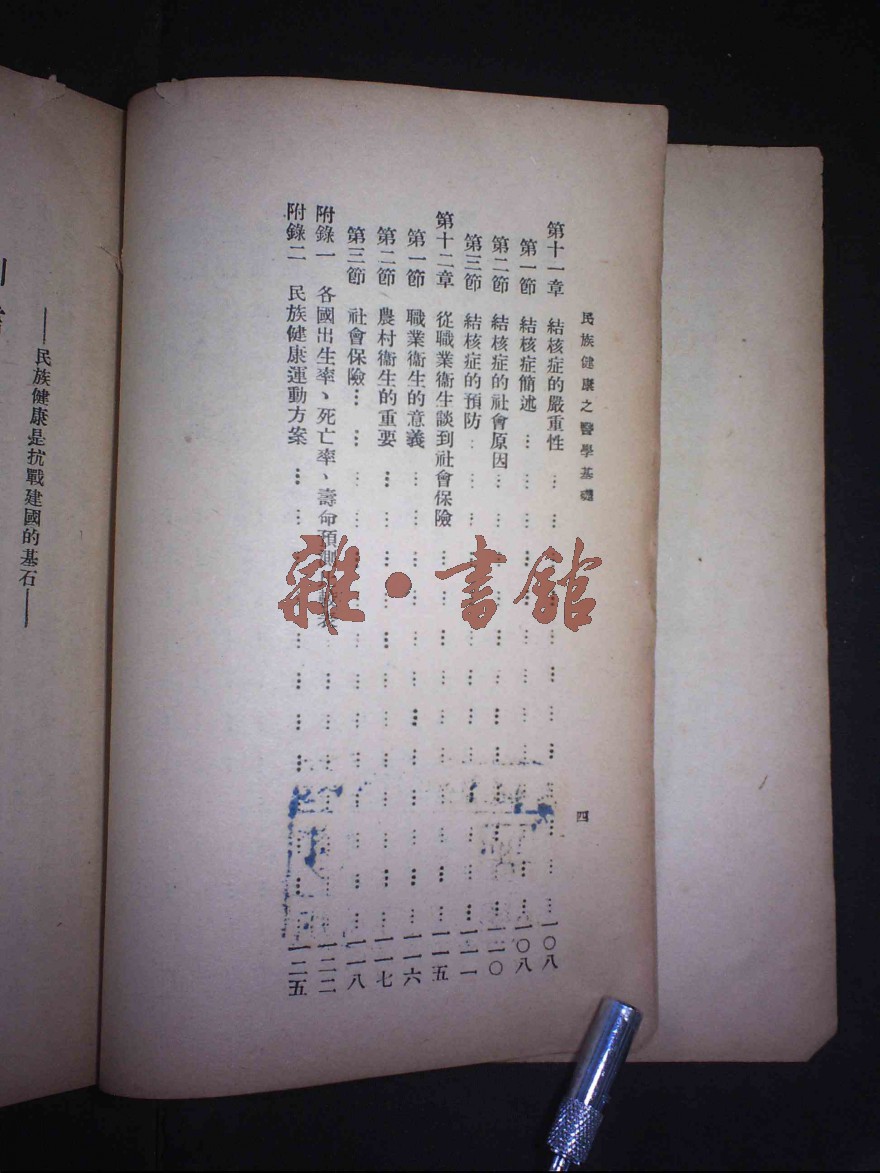 民族健康之醫學基礎
四
第十一章 結核症的嚴重性……一〇八
第一節 結核症簡述……一〇八
第二節 結核症的社會原因……一一〇
第三節 結核症的預防……一一一
第十二章 從職業衞生談到社會保險……一一五
第一節 職業衞生的意義……一一六
第二節 農村衞生的重要……一一七
第三節 社會保險……一一八
附錄一 各國出生率、死亡率、壽命預測……一二二
附錄二 民族健康運動方案……一二五
——民族健康是抗戰建國的基石——
雜·書館